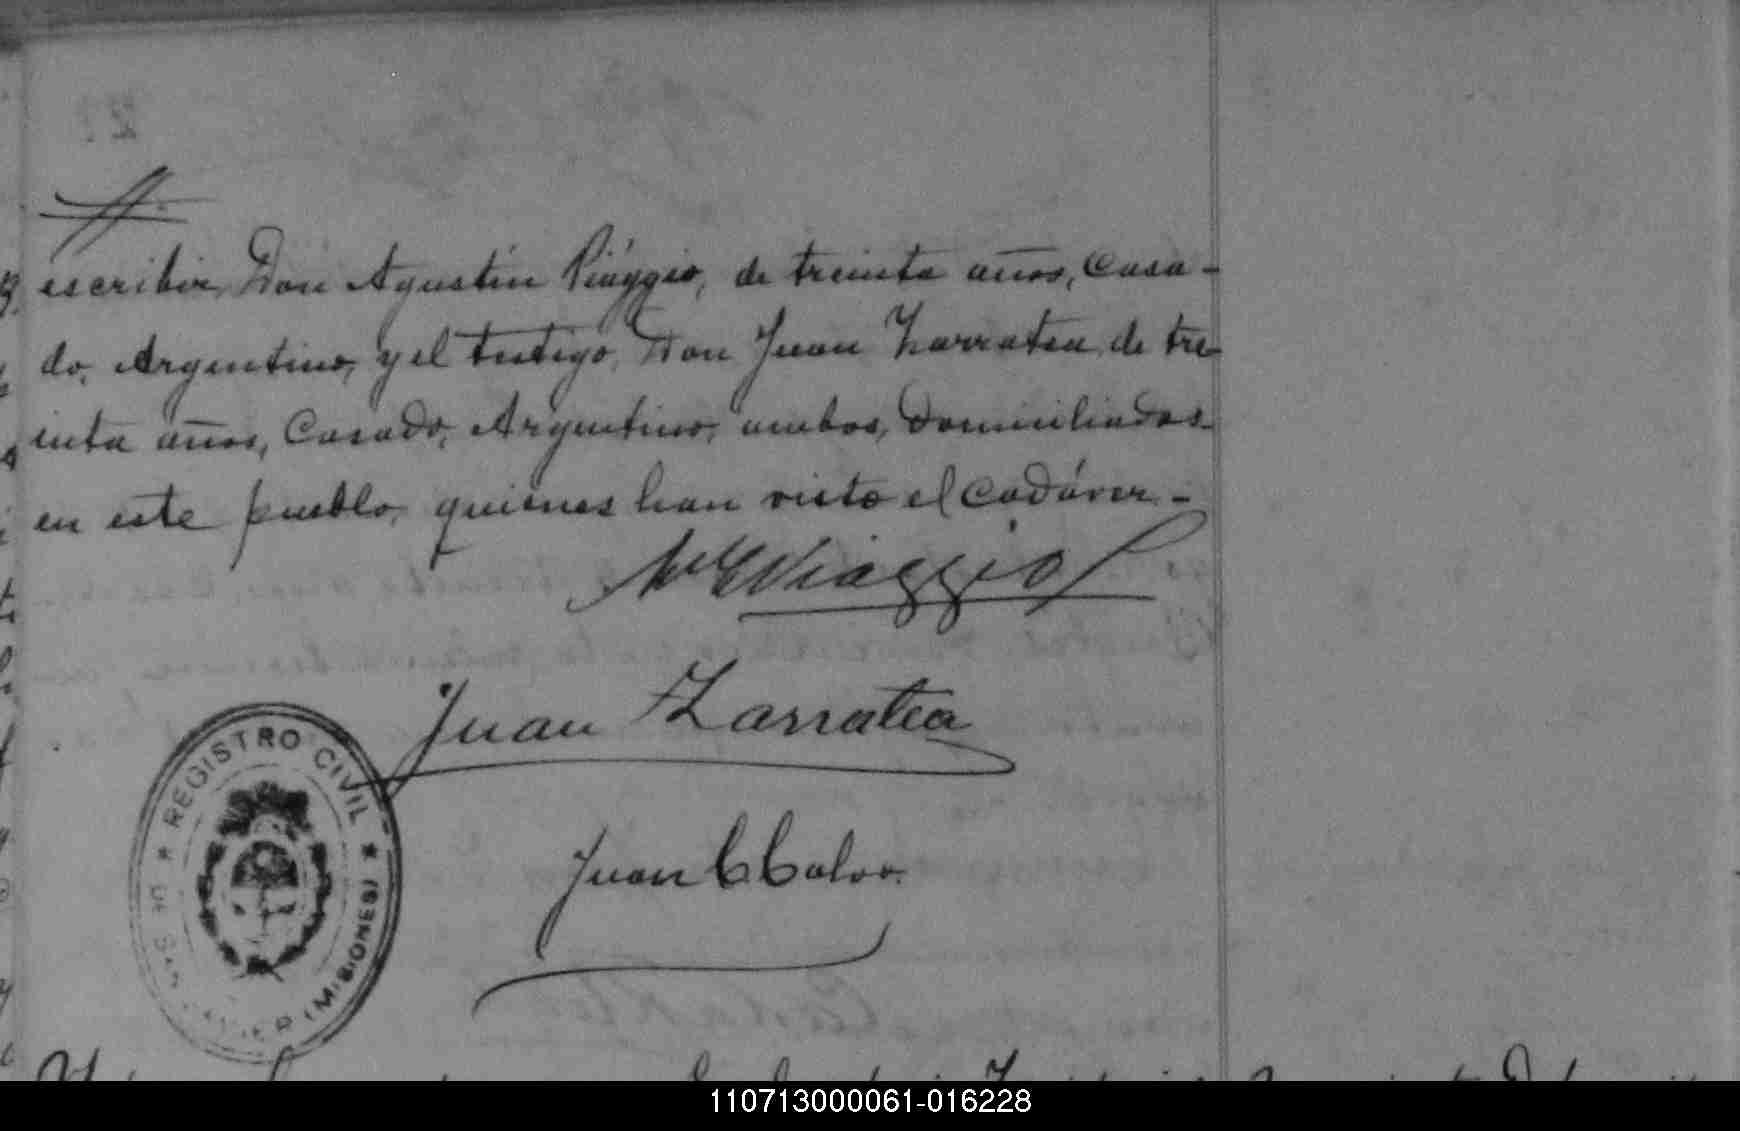 escribir, Don Agustín Viággio, de treinta años, Casa-
do, Argentino, y el testigo, Don Juan Larratea, de tre-
inta años, Casado, Argentino, ambos, domiciliados
en este pueblo, quienes han visto el Cadáver.-
Viaggio
Juan Larratea
REGISTRO CIVIL
DE SAN JAVIER (MISIONES)
Juan C Calvo
110713000061-016228